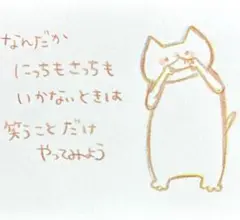 なんだか
にっちもさっちも
いかないときは
笑うことだけ
やってみよう